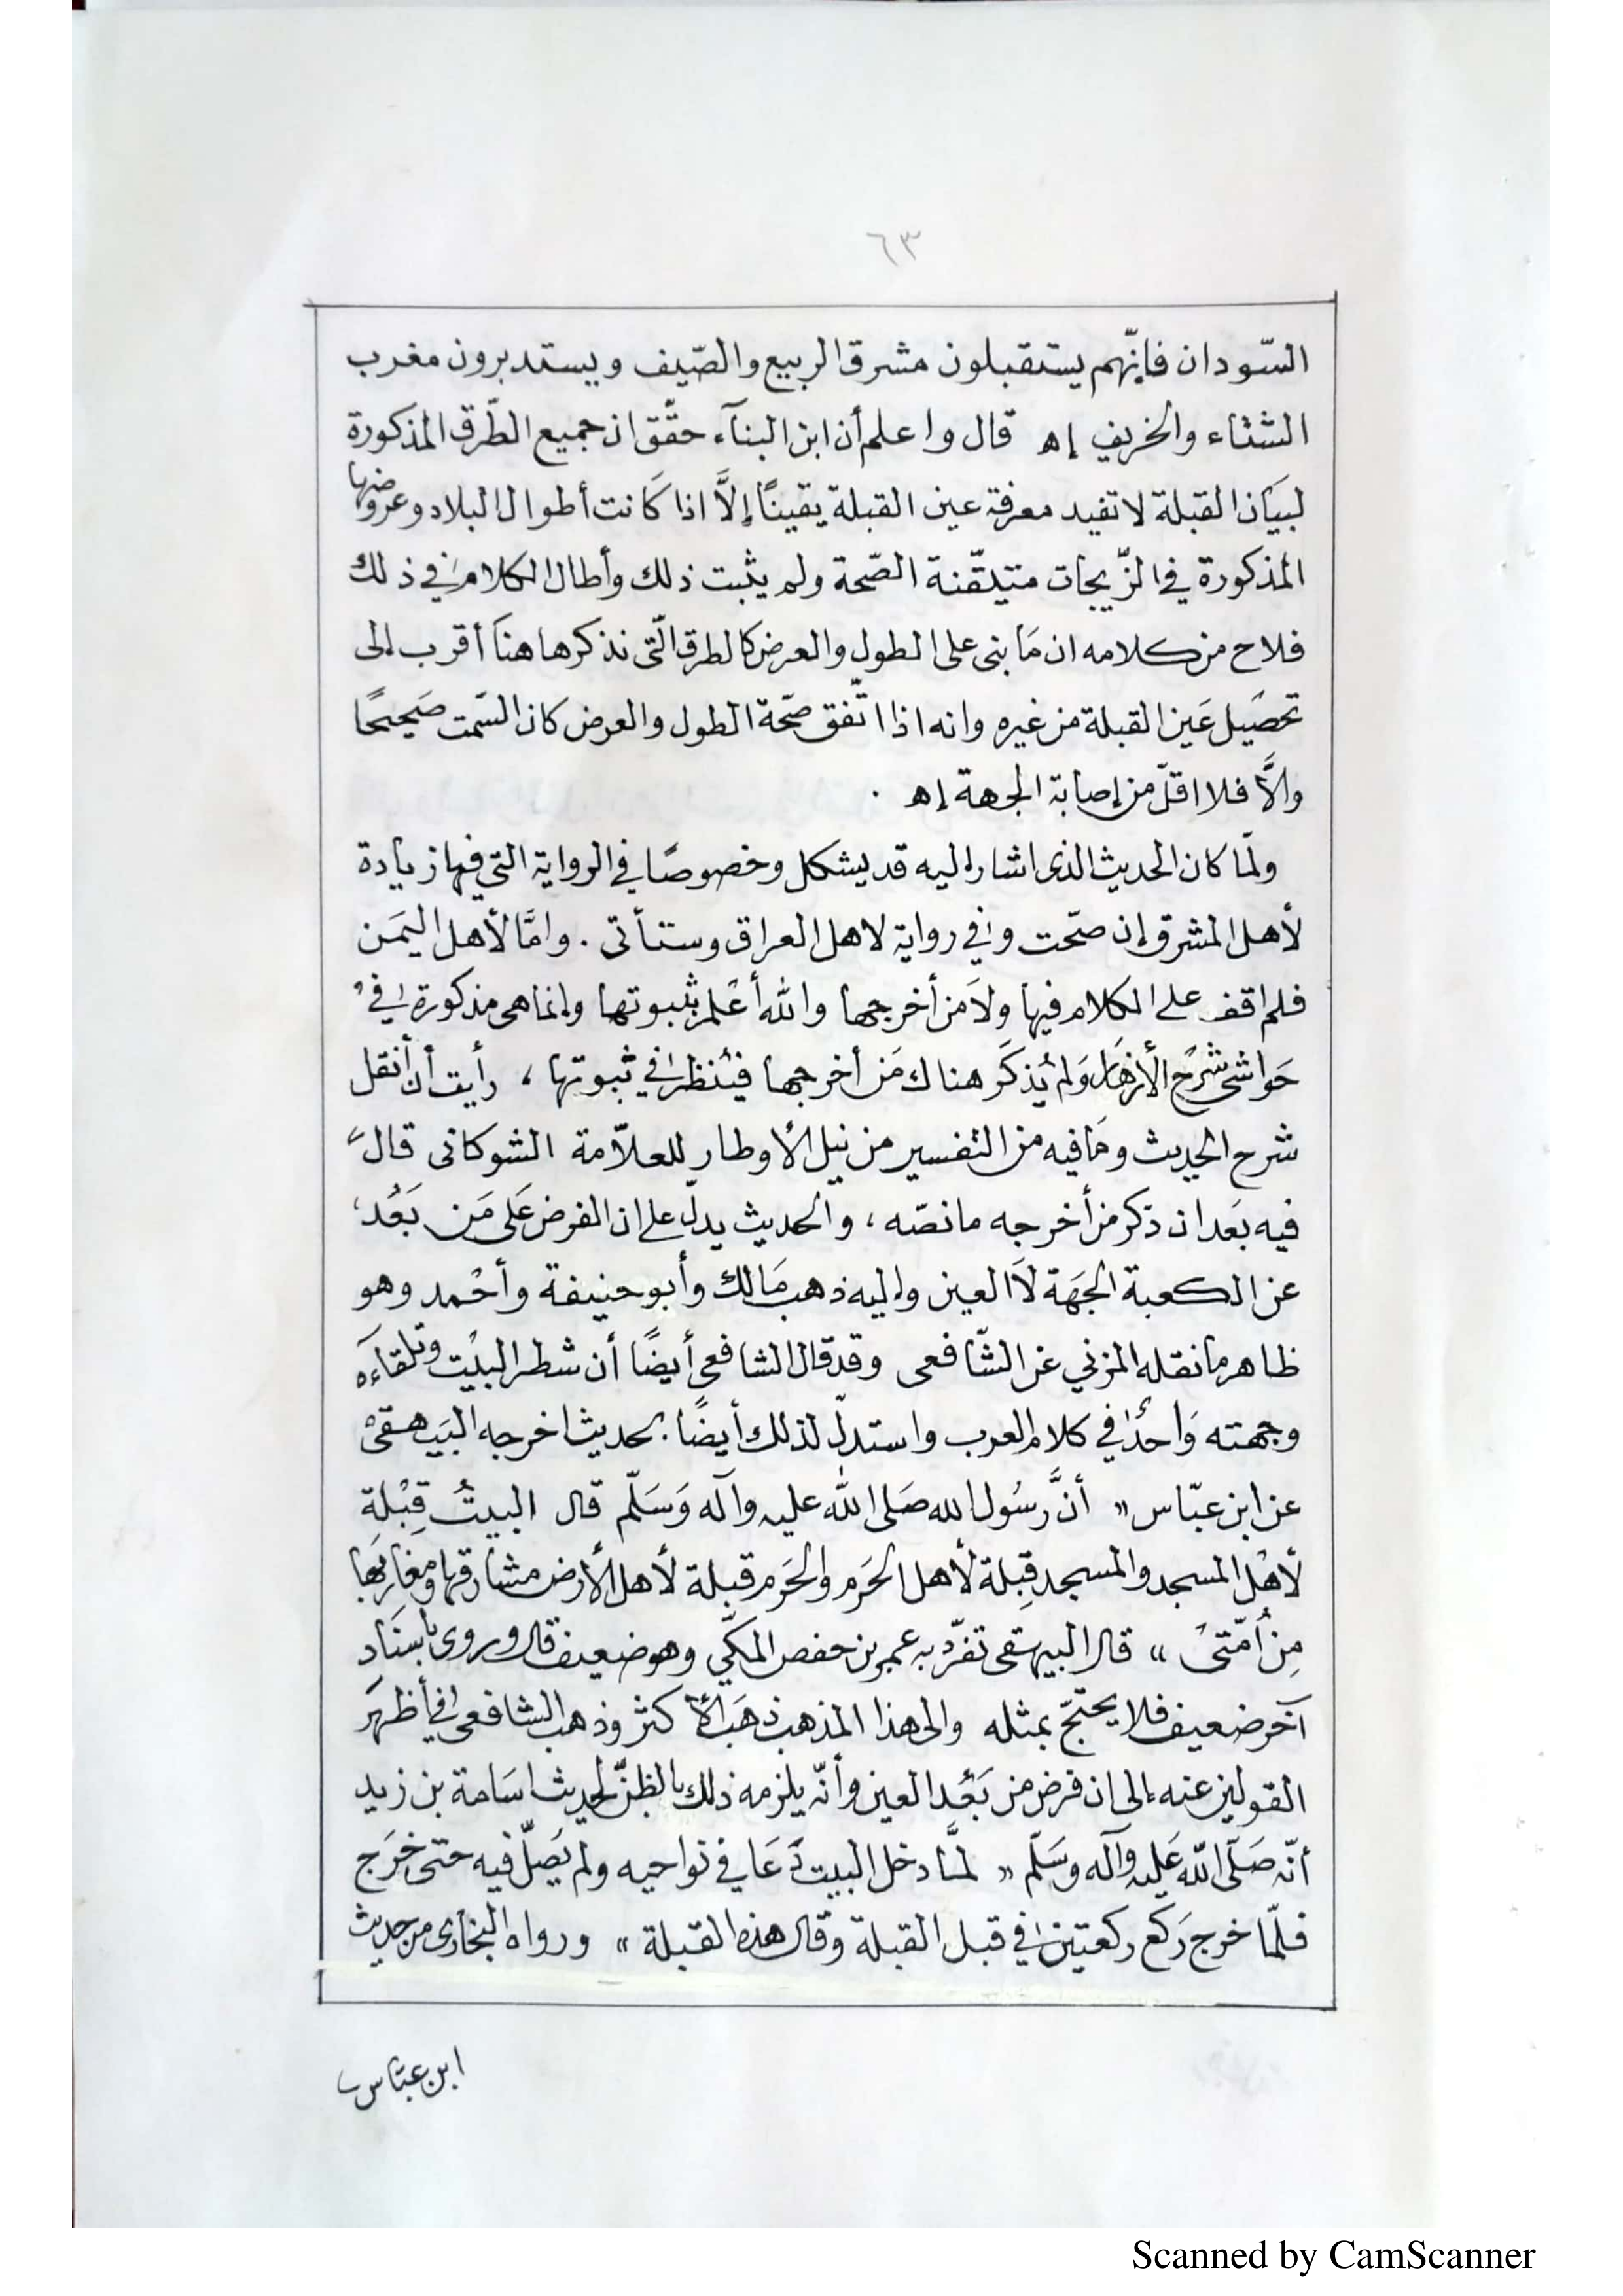 ٦٣
السّودان فإنّهم يستقبلون مشرق الربيع والصّيف ويستدبرون مغرب
الشتاء والخريف إه قال واعلم أن ابن البنآء حقّق ان جميع الطّرق المذكورة
لبيَان القبلة لا تفيد معرفة عين القبلة يقينًا إلاَّ اذا كَانت أطوال البلاد وعروضها
المذكورة في الزّيجات متيقّنة الصّحة ولم يثبت ذلك وأطال الكلام في ذلك
فلاح من كلامه ان مَا بنى على الطول والعرض كالطرق الّتى نذكرها هنَا أقرب إلى
تحصَيل عَين القبلة من غيره وانه اذا اتّفق صّحة الطول والعرض كان السّمت صَحيحًا
والاَّ فلا اقلّ من إصابة الجهة إه .
ولمّا كان الحديث الذى اشار إليه قد يشكل وخصوصًا في الرواية التي فيها زيادة
لأهل المشرق إن صحّت وفي رواية لاهل العراق وستأتى . وامَّا لأهل اليَمَن
فلم اقف على الكلام فيها ولاَ من أخرجها والله أعْلم بثبوتها وإنما هى مذكورة في
حَواشى شرْح الأزهَار وَلم يُذكَر هناك مَن أخرجها فيُنظر في ثبوتها ، رأيت أن أنقل
شرح الحديث ومَا فيه من التفسير من نيل الأوطار للعلاّمة الشوكانى قال
فيه بَعد ان ذكر من أخرجه ما نصّه ، والحديث يدلّ على ان الفرض عَلى مَن بَعُد
عن الكعبة الجَهَة لاَ العين وإليه ذهب مَالك وأبو حنيفة وأحْمد وهو
ظاهر ما نقله المزني عن الشّافعى وقد قال الشافعى أيضًا أن شطر البيْت وتلقاءَه
وجهته وَاحدٌ في كلام العرب واستدلّ لذلك أيضًا بحديث اخرجه البَيهقىْ
عن ابن عبّاس « أنَّ رسُول الله صَلى الله عليه وآله وَسَلّم قال البيتُ قِبْلة
لأهْل المسجد والمسجد قِبلة لأهل الحَرم والحَرم قبلة لأهل الأرض مشارقها ومغاربَها
مِن أُمّتىْ » قال البيهقى تفرّد به عمر بن حفص المكّي وهو ضعيف قال وروى بأسنَاد
آخَر ضعيف فلا يحتجّ بمثله والى هذا المذهب ذهَب الأكثر وذهب الشافعى في أظهَر
القولين عنه إلى ان فرض من بَعُد العين وأنّه يلزمه ذلك بالظنّ لحديث اسَامة بن زيد
أنّه صَلّى اللّه عَليه وآله وسَلّم « لمَّا دخل البيت دَعَا في نواحيه ولم يُصَلّ فيه حتى خرَج
فلمّا خرج رَكع ركعتين في قبل القبلة وقال هذه القبلة » ورواه البخَارى من حديث
ابن عبّاس
Scanned by CamScanner